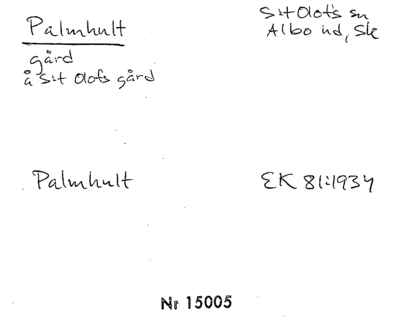 Palmhult
gård
å S:t Olofs gård
S:t Olofs sn
Albo hd, Sk
Palmhult
EK 81:1934
Nr 15005